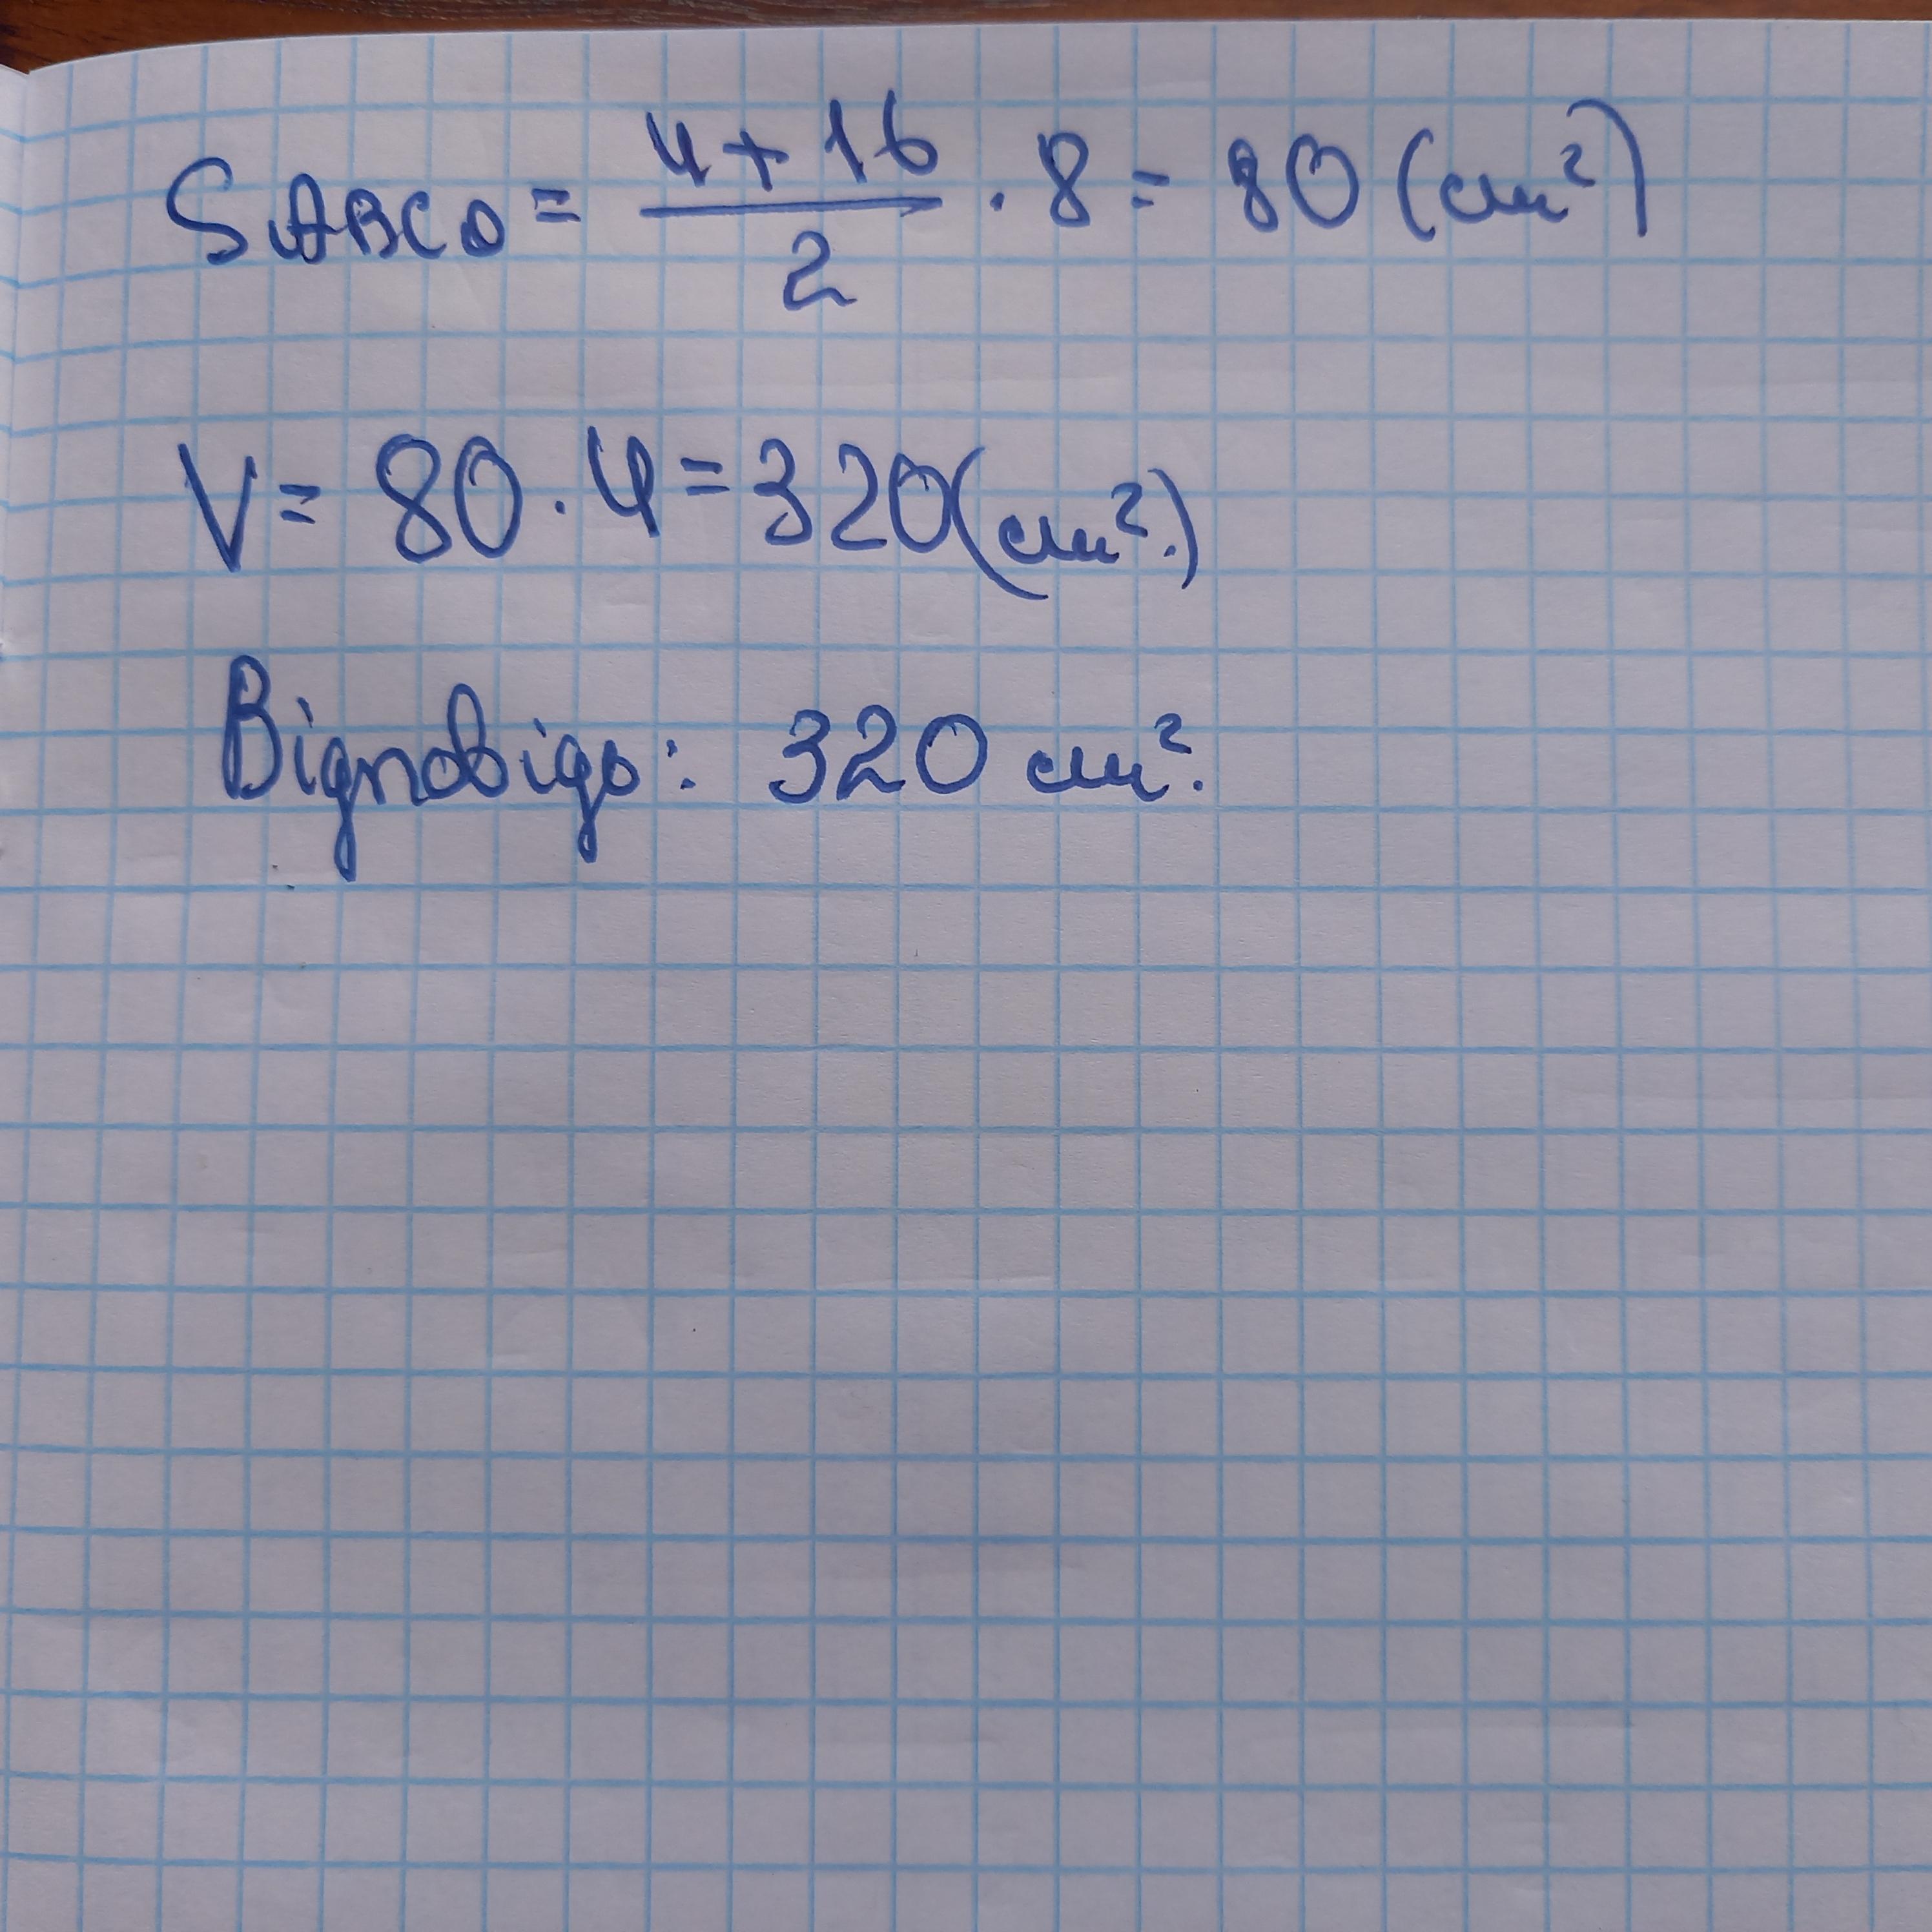 S ABCD = (4 + 16)/2 · 8 = 80 (см²)
V = 80 · 4 = 320 (см².)
Відповідь: 320 см².